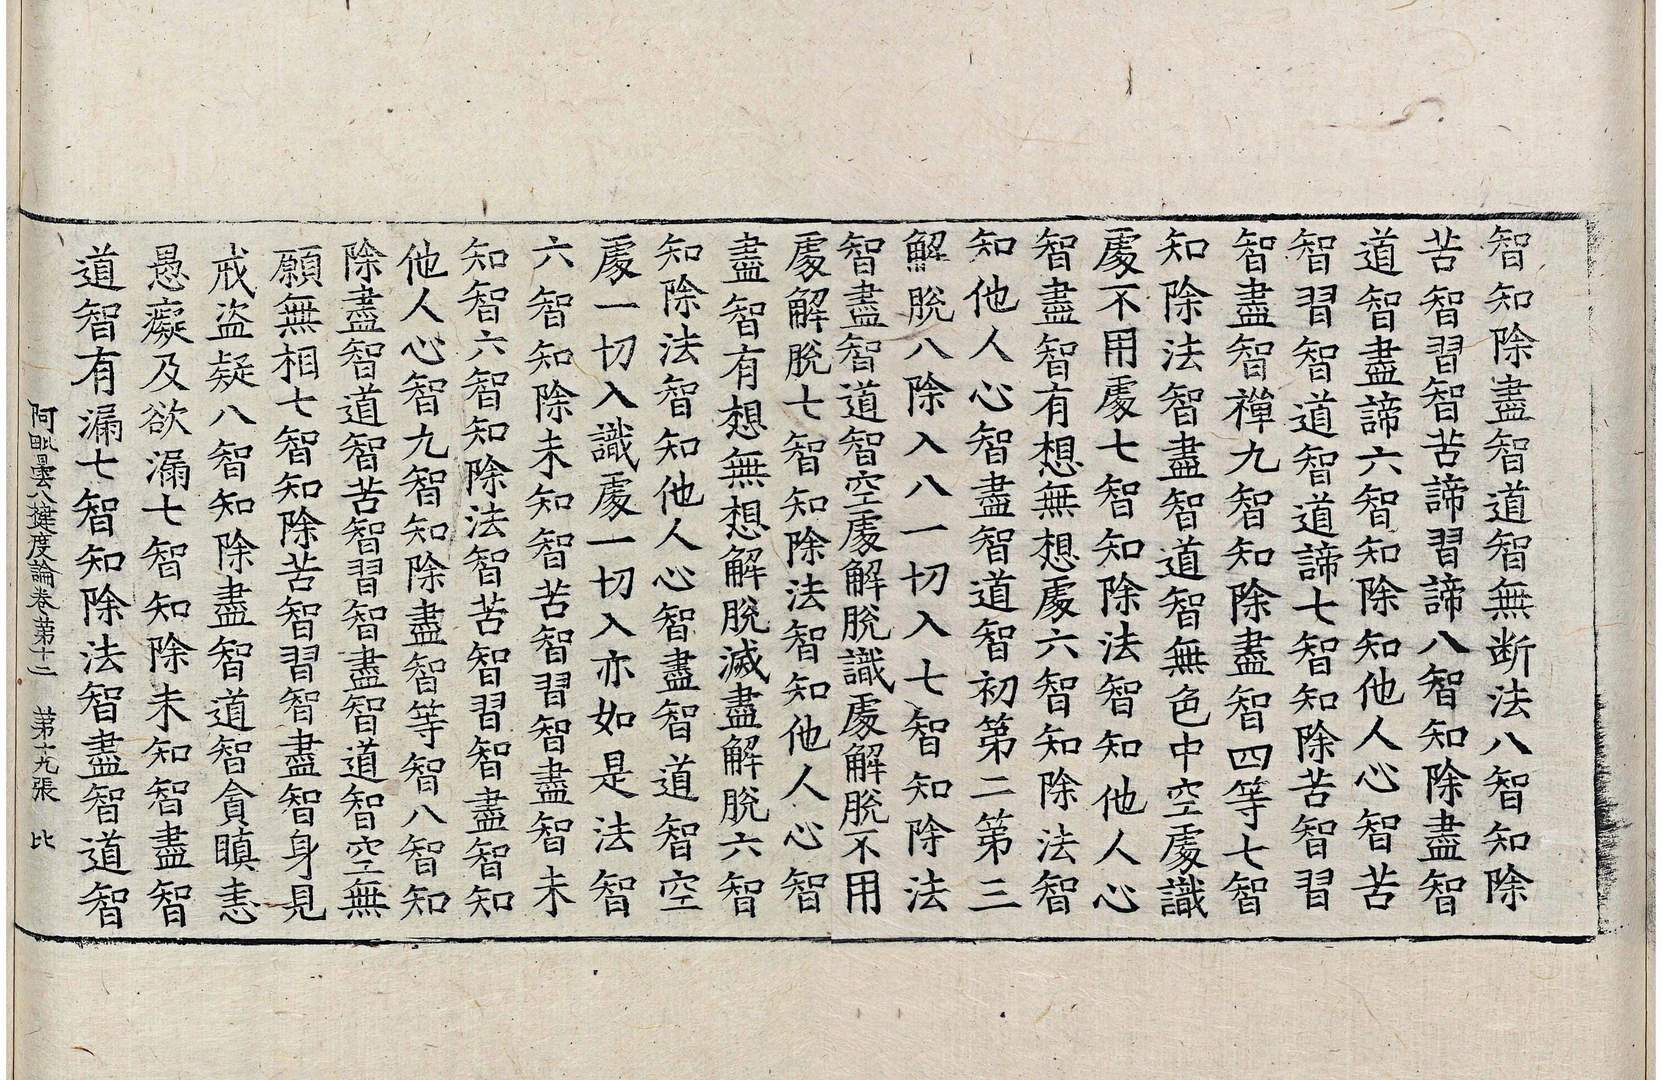 智知除盡智道智無断法八智知除
苦智習智苦諦習諦八智知除盡智
道智盡諦六智知除知他人心智苦
智習智道智道諦七智知除苦智習
智盡智禪九智知除盡智四等七智
知除法智盡智道智無色中空處識
處不用處七智知除法智知他人心
智盡智有想無想處六智知除法智
知他人心智盡智道智初第二第三
解脫八除入八一切入七智知除法
智盡智道智空處解脫識處解脫不用
處解脫七智知除法智知他人心智
盡智有想無想解脫滅盡解脫六智
知除法智知他人心智盡智道智空
處一切入識處一切入亦如是法智
六智知除未知智苦智習智盡智未
知智六智知除法智苦智習智盡智知
他人心智九智知除盡智等智八智知
除盡智道智苦智習智盡智道智空無
願無相七智知除苦智習智盡智身見
戒盜疑八智知除盡智道智貪瞋恚
愚癡及欲漏七智知除未知智盡智
道智有漏七智知除法智盡智道智
阿毗曇八揵度論卷第十二 第十九張 比